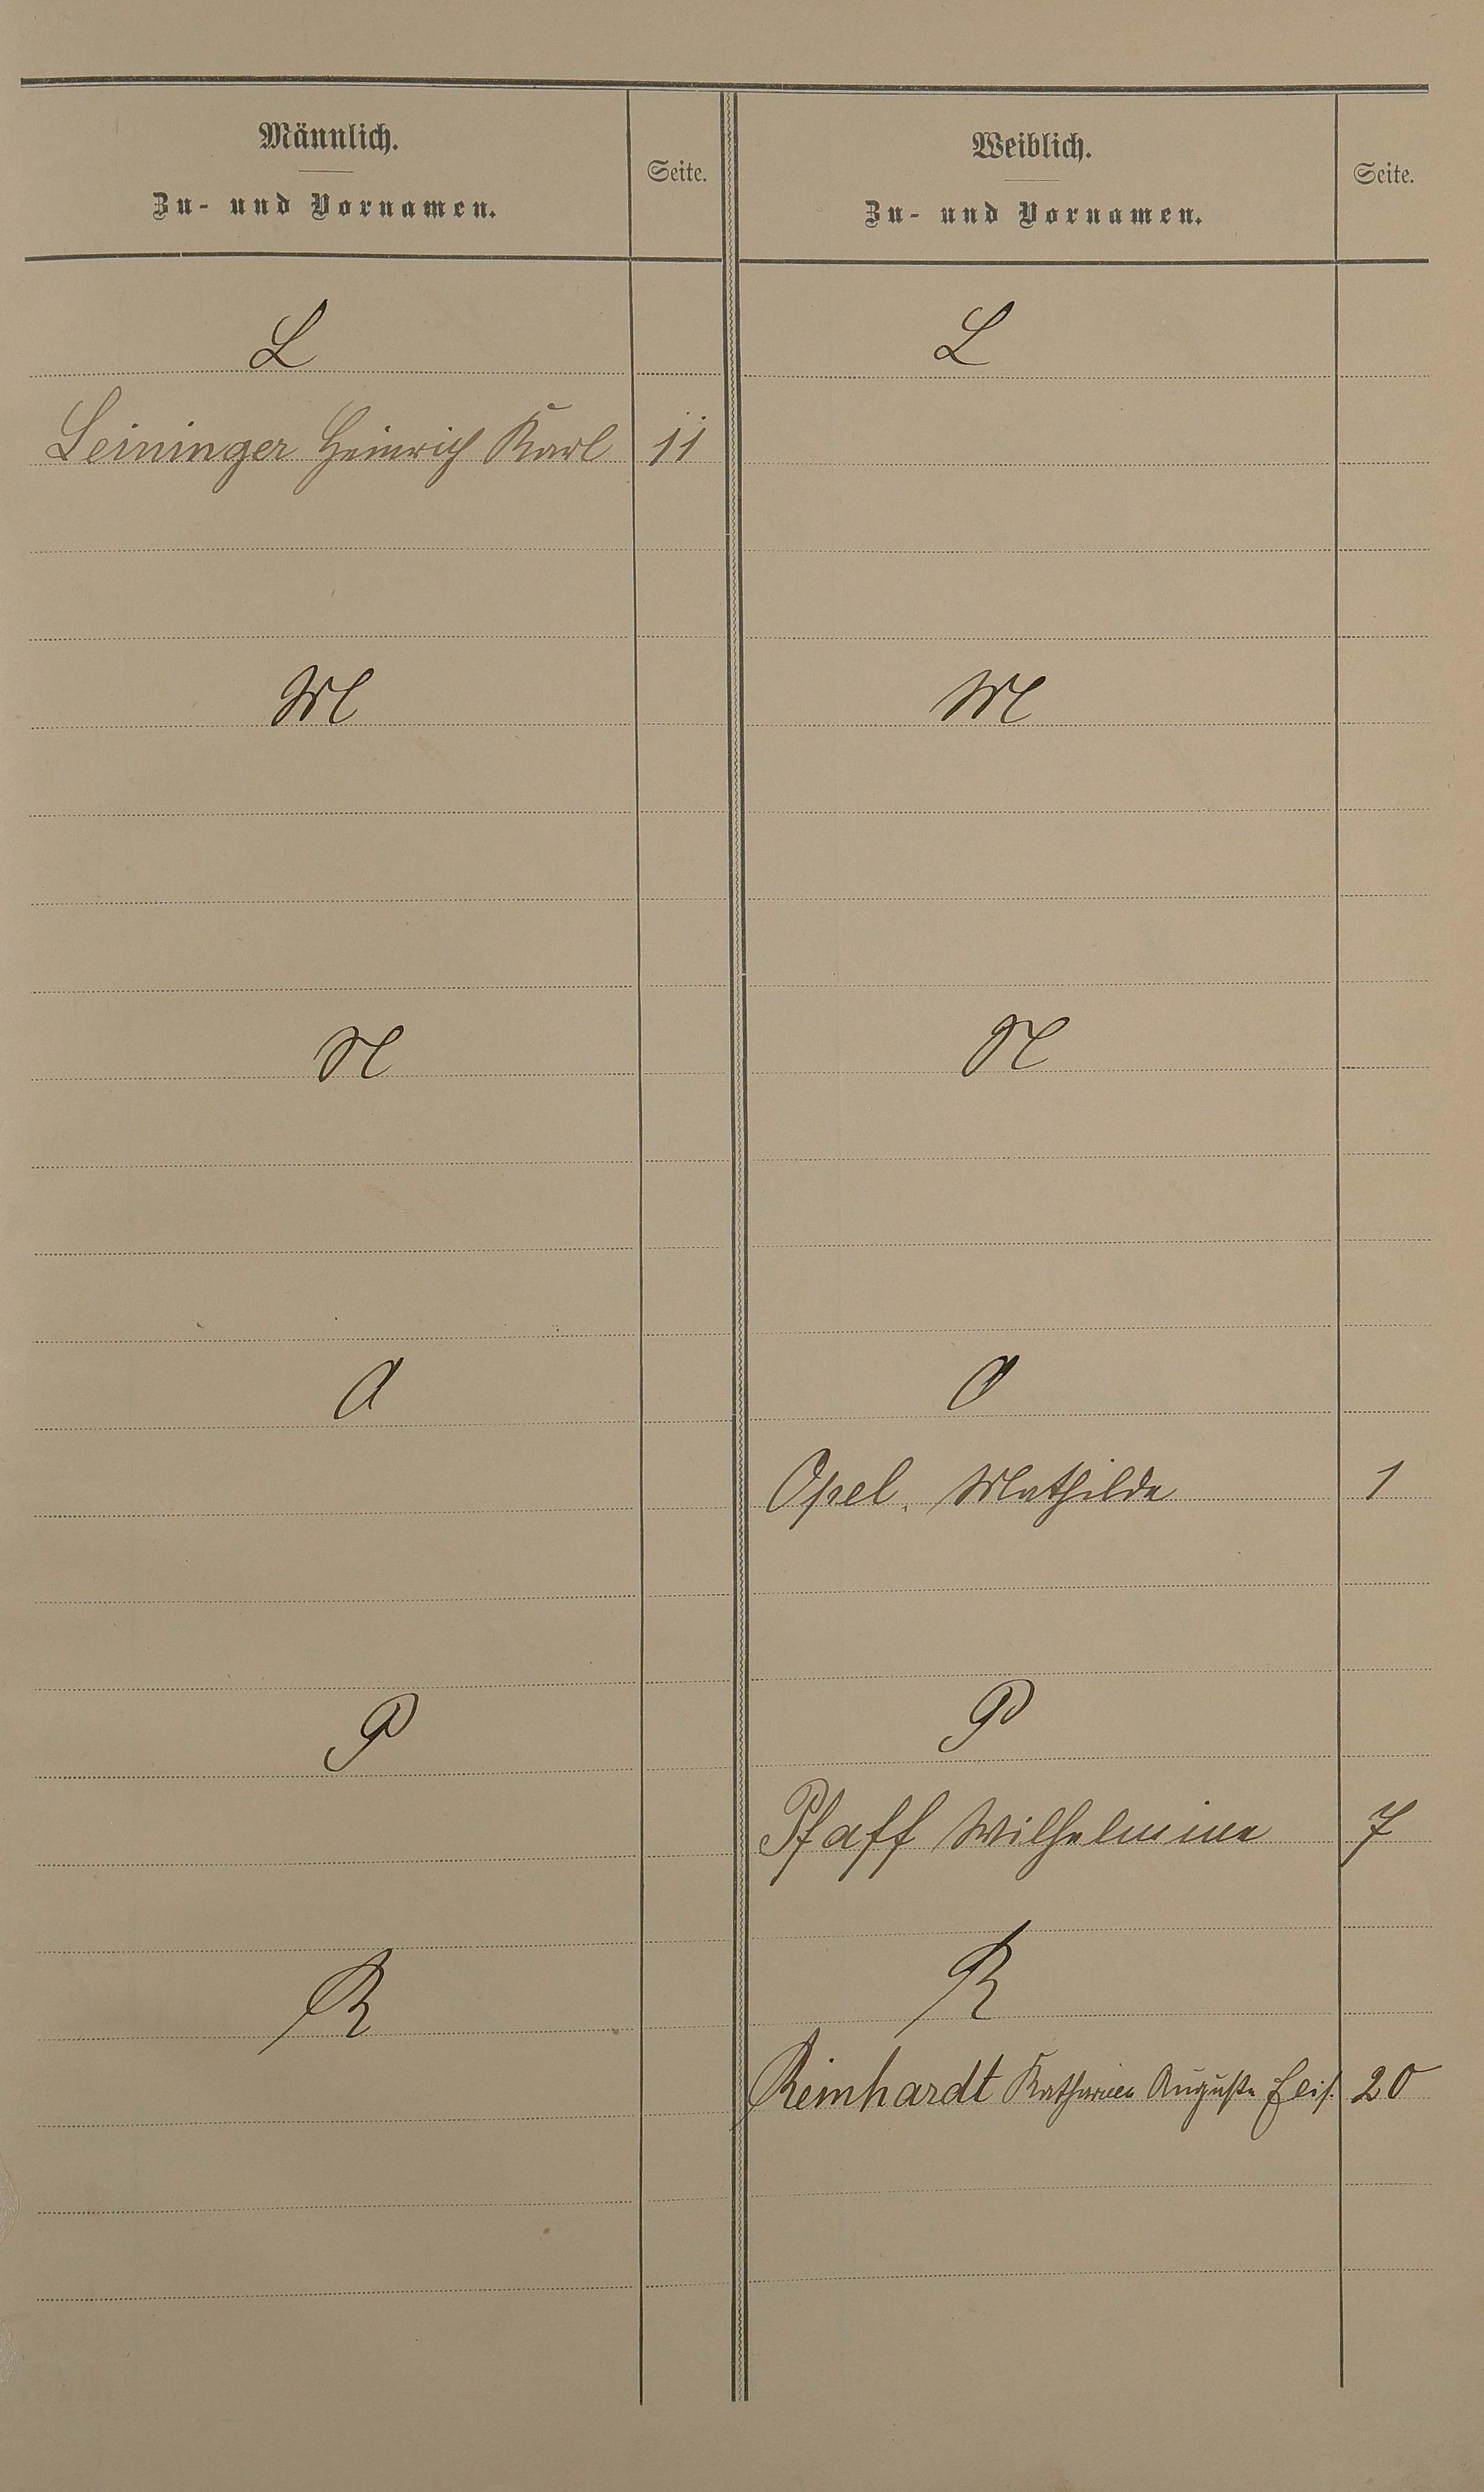 Männlich.
Zu- und Vornamen.
Seite.
Weiblich.
Zu- und Vornamen.
Seite.
L
L
Leininger Heinrich Karl 11
M
M
N
N
O
O
Opel, Mathilde 1
P
P
Pfaff Wilhelmine 7
R
R
Reinhardt Katharina Auguste Elis. 20